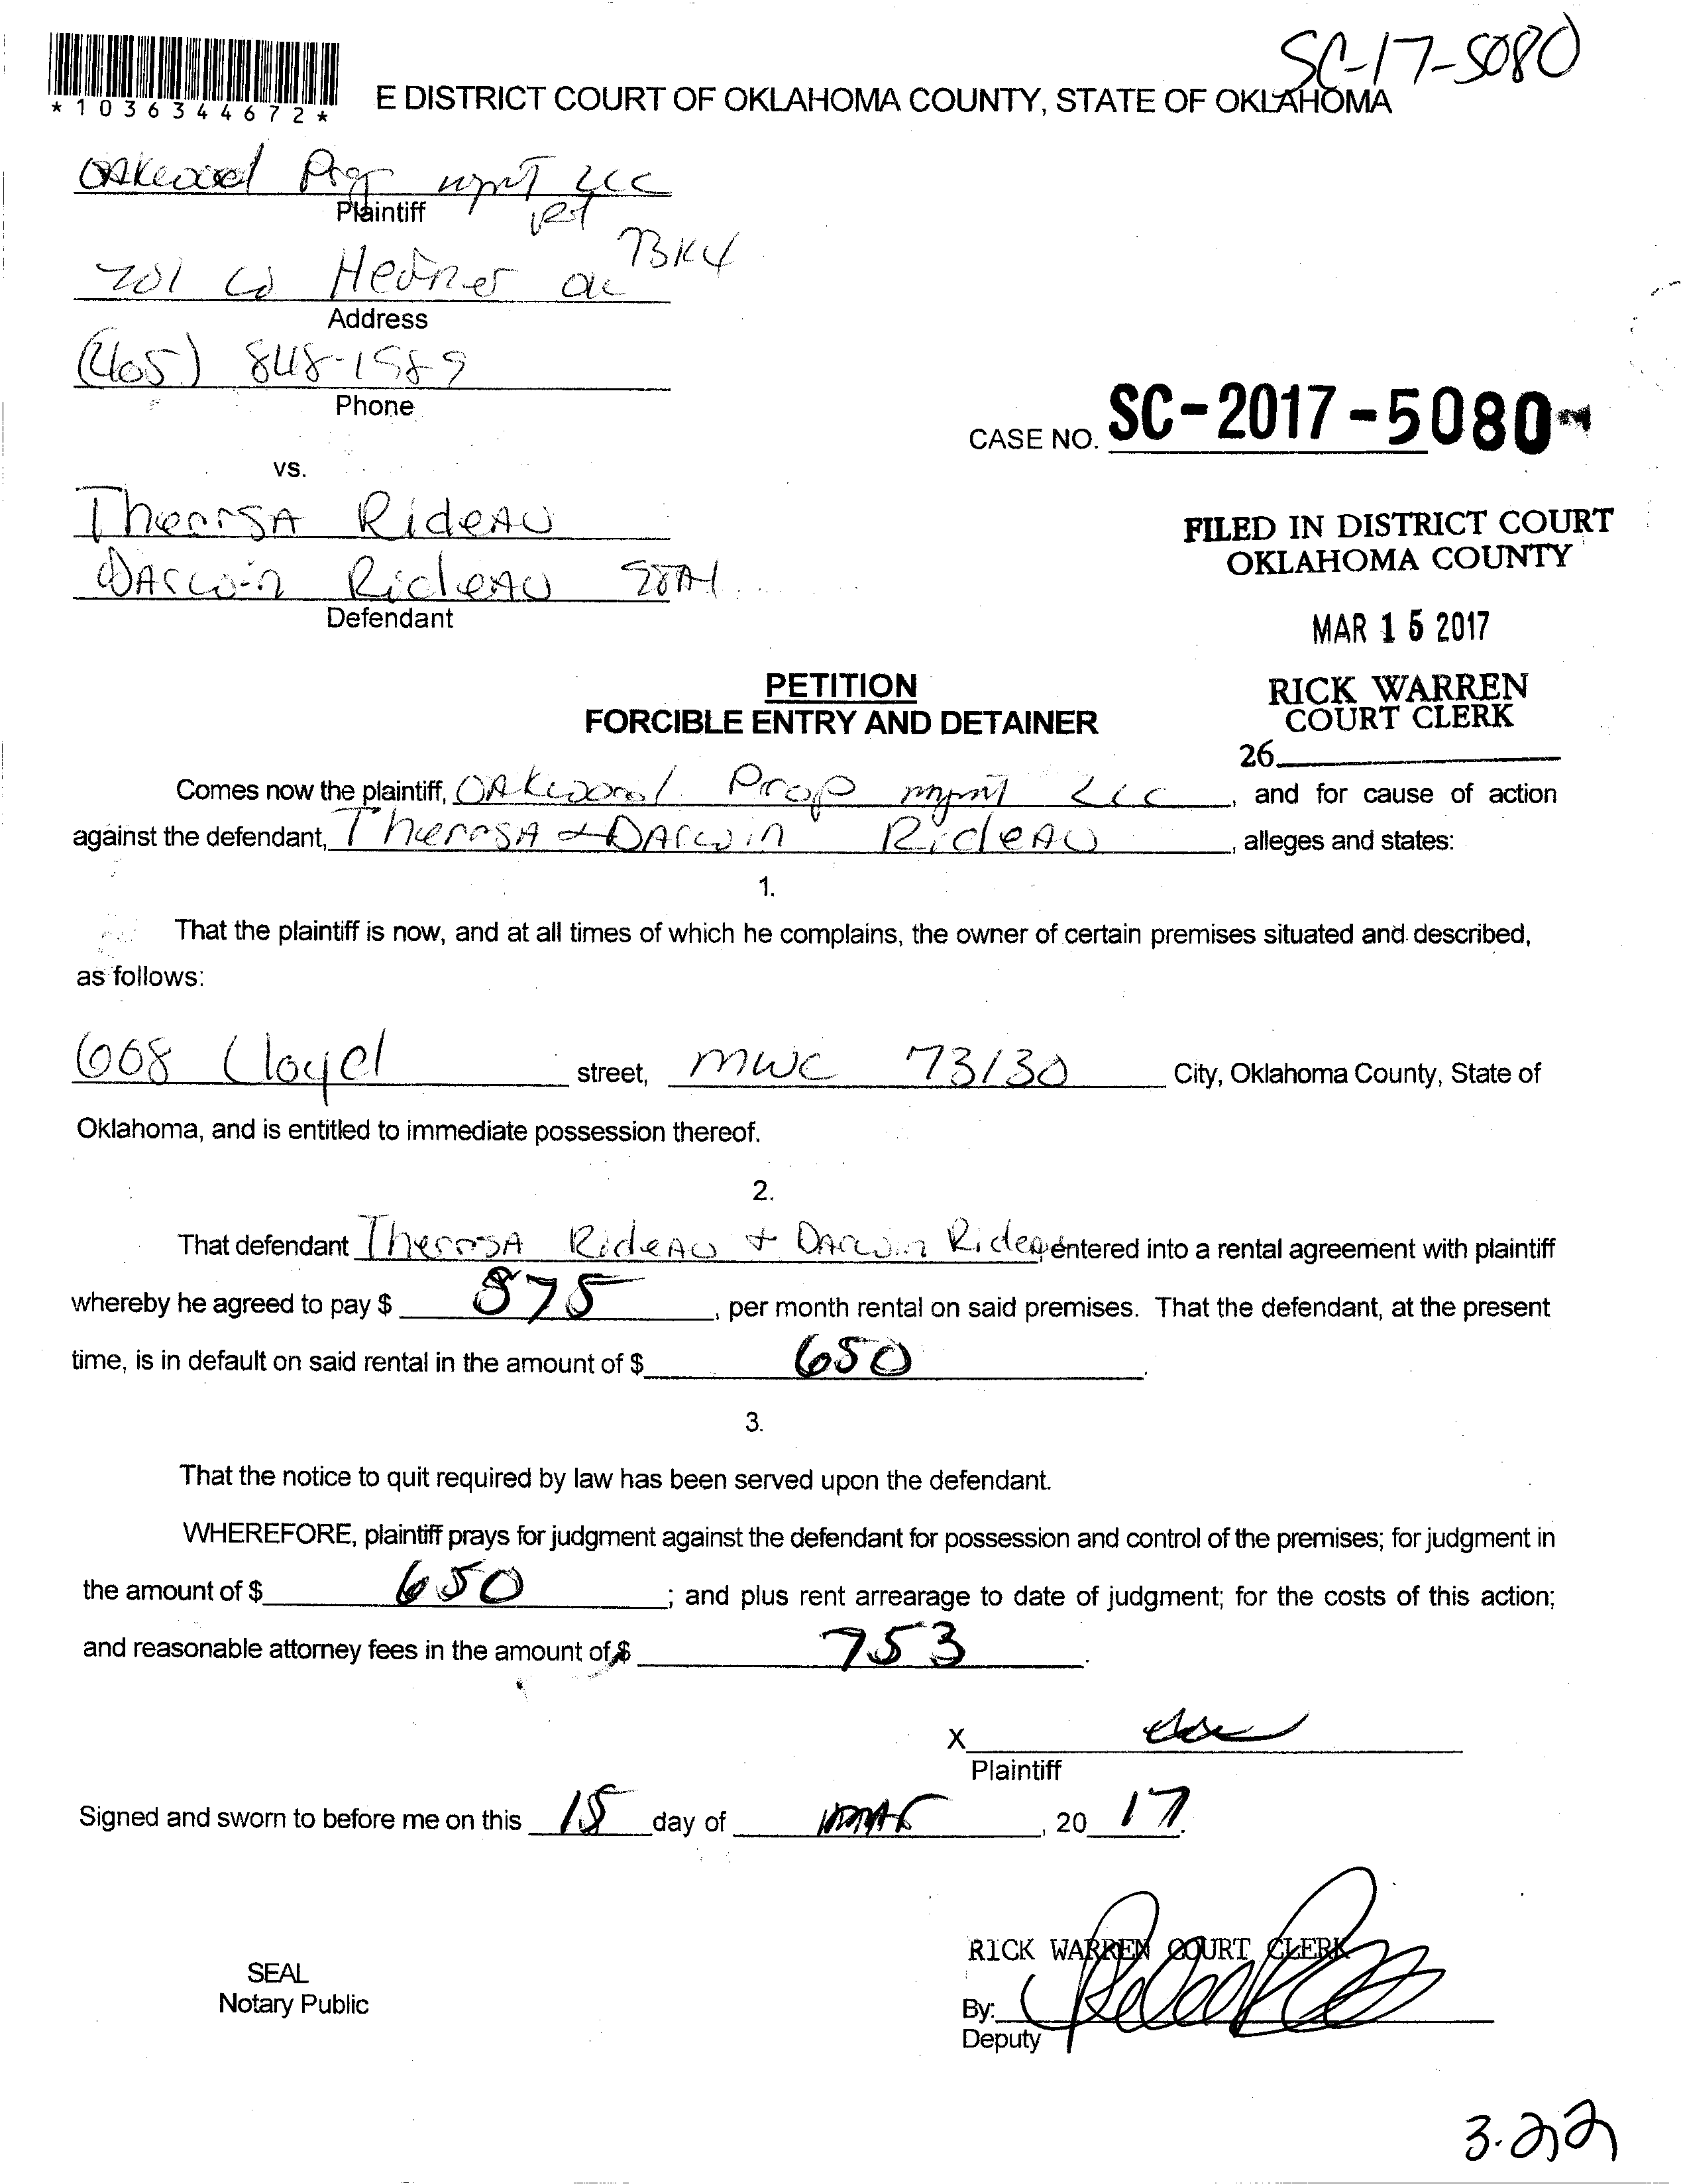 SC-17-5080
*1036344672*
E DISTRICT COURT OF OKLAHOMA COUNTY, STATE OF OKLAHOMA
OAKwood Prop mgmT LLC
Plaintiff
201 W Hefner
Address
(405) 848-1589
Phone
CASE NO. SC-2017-5080
vs.
TheresA RideAU
DArwin RideAU
Defendant
FILED IN DISTRICT COURT
OKLAHOMA COUNTY
MAR 15 2017
RICK WARREN
COURT CLERK
26
PETITION
FORCIBLE ENTRY AND DETAINER
Comes now the plaintiff, OAkwood Prop mgmt LLC, and for cause of action
against the defendant, TheresA & DArwin RideAU, alleges and states:
1.
That the plaintiff is now, and at all times of which he complains, the owner of certain premises situated and described,
as follows:
608 Lloyd street, MWC 73130 City, Oklahoma County, State of
Oklahoma, and is entitled to immediate possession thereof.
2.
That defendant TheresA RideAU + DArwin RideAU entered into a rental agreement with plaintiff
whereby he agreed to pay $ 875, per month rental on said premises. That the defendant, at the present
time, is in default on said rental in the amount of $ 650.
3.
That the notice to quit required by law has been served upon the defendant.
WHEREFORE, plaintiff prays for judgment against the defendant for possession and control of the premises; for judgment in
the amount of $ 650; and plus rent arrearage to date of judgment; for the costs of this action;
and reasonable attorney fees in the amount of $ 753.
X
Plaintiff
Signed and sworn to before me on this 15 day of MAr, 20 17.
RICK WARREN COURT CLERK
SEAL
Notary Public
By:
Deputy
3.22